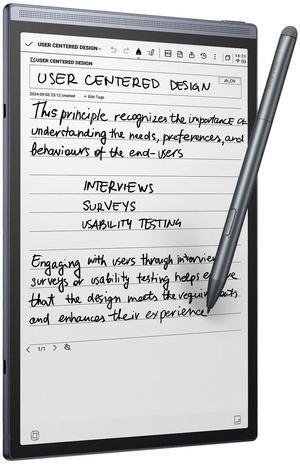 USER CENTERED DESIGN
USER CENTERED DESIGN
USER CENTERED DESIGN
zh_CN
2024-09-03 23:12 created + Edit Tags
This principle recognizes the importance of
understanding the needs, preferences, and
behaviours of the end-users
INTERVIEWS
SURVEYS
USABILITY TESTING
Engaging with users through interview
surveys or usability testing helps
that the design meets the
and enhances their experience
1/1